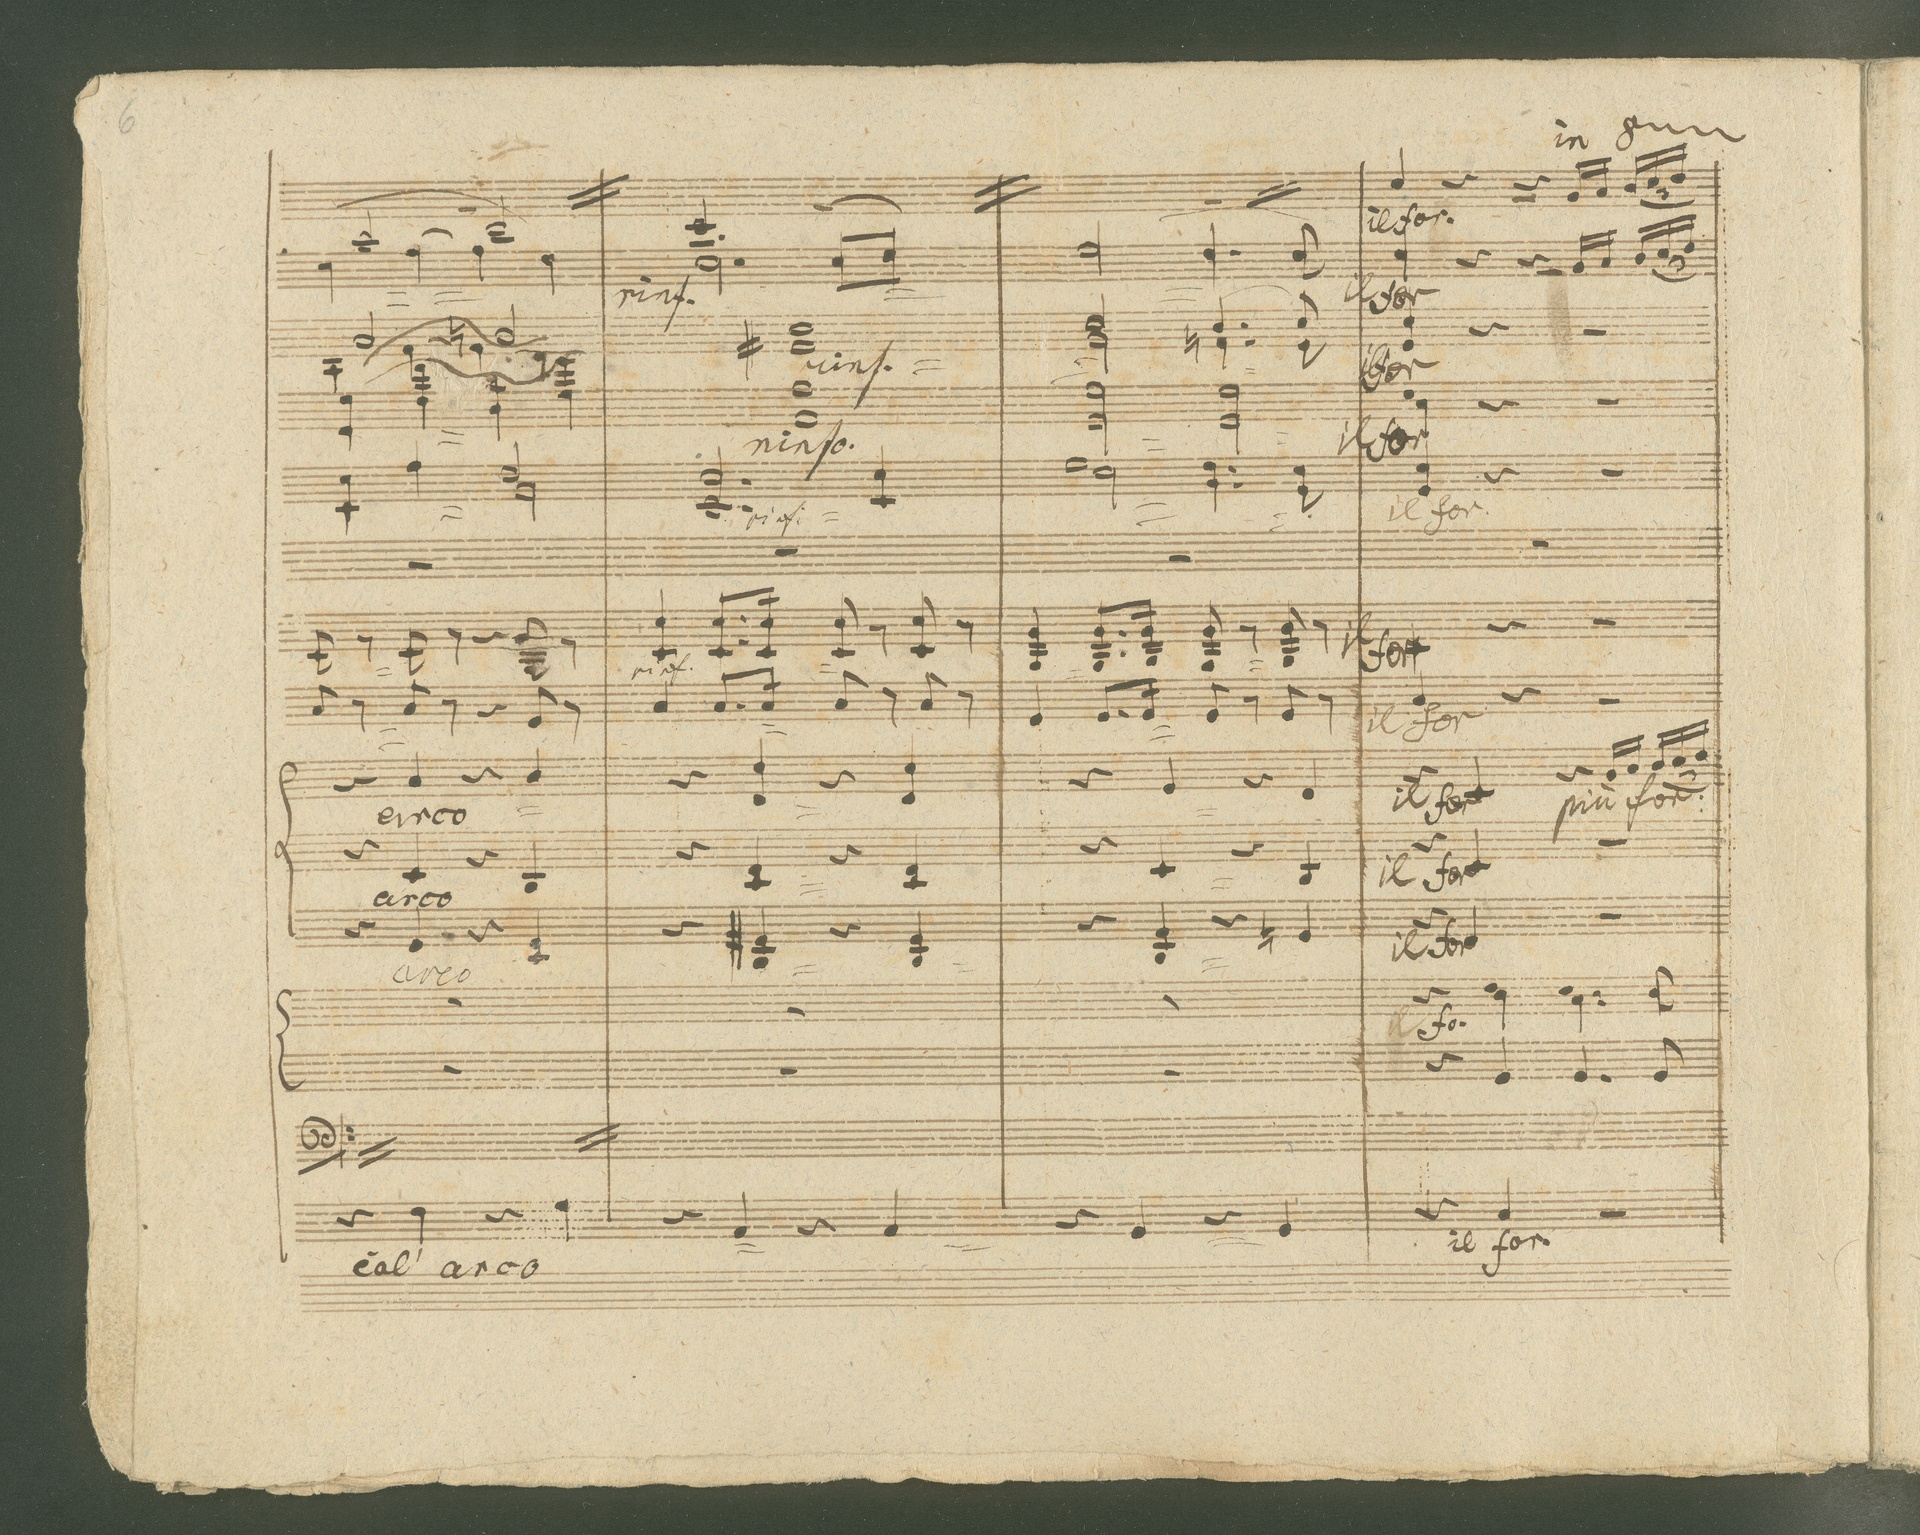 6
in 8
il for.
rinf.
il for
rinf.
il for
rinfo.
il for
rinf.
il for.
il for
rinf.
il for
arco
il for
più for.
arco
il for
arco
il for
il fo.
col' arco
il for.